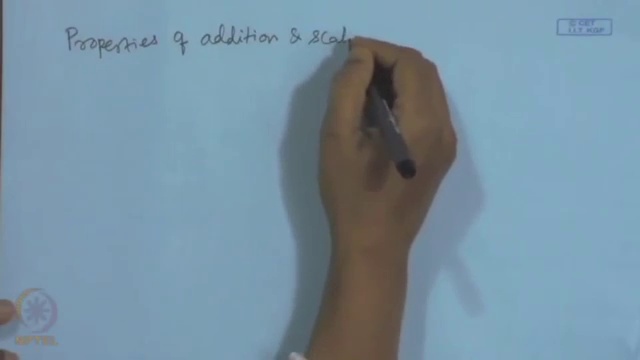 Properties of addition & scal
© CET
I.I.T. KGP
NPTEL